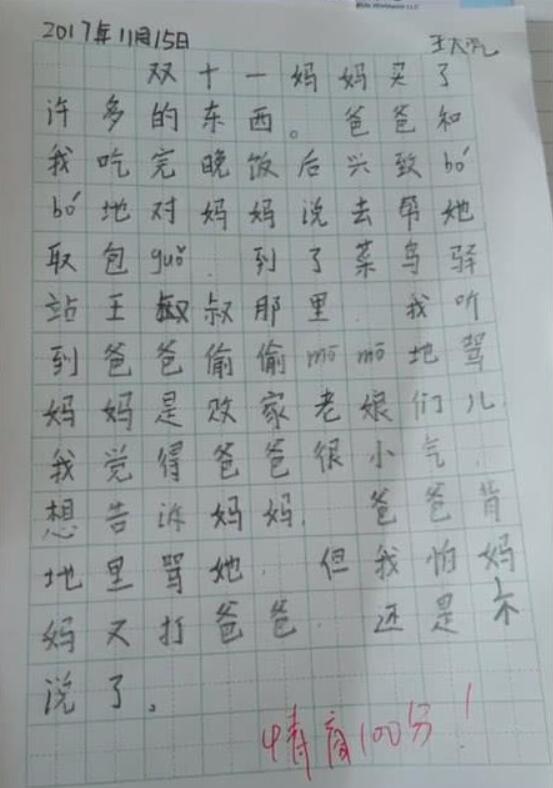 2017年11月15日
王大沉
双十一妈妈买了
许多的东西。爸爸和
我吃完晚饭后兴致bó
bó地对妈妈说去帮她
取包guǒ.到了菜鸟驿
站王叔叔那里.我听
到爸爸偷偷mō mō地骂
妈妈是败家老娘们儿.
我觉得爸爸很小气.
想告诉妈妈.爸爸背
地里骂她.但我怕妈
妈又打爸爸.还是不
说了。
情商100分!